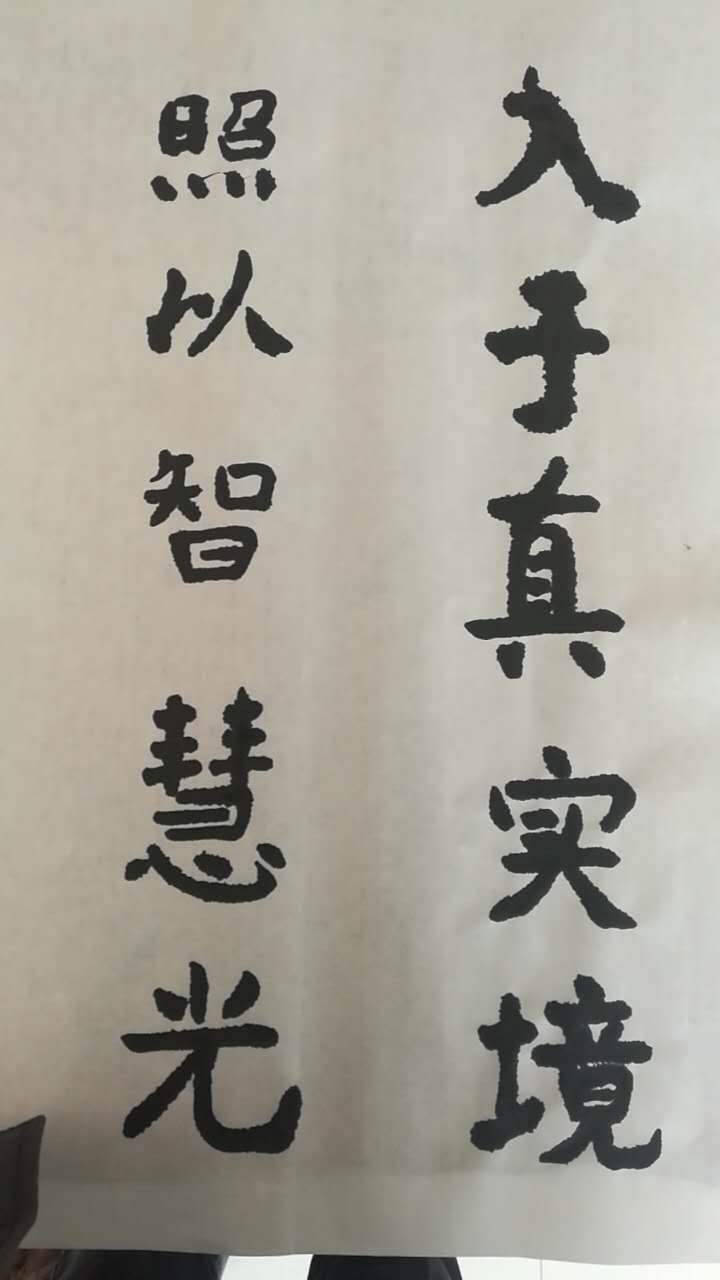 入于真实境
照以智慧光